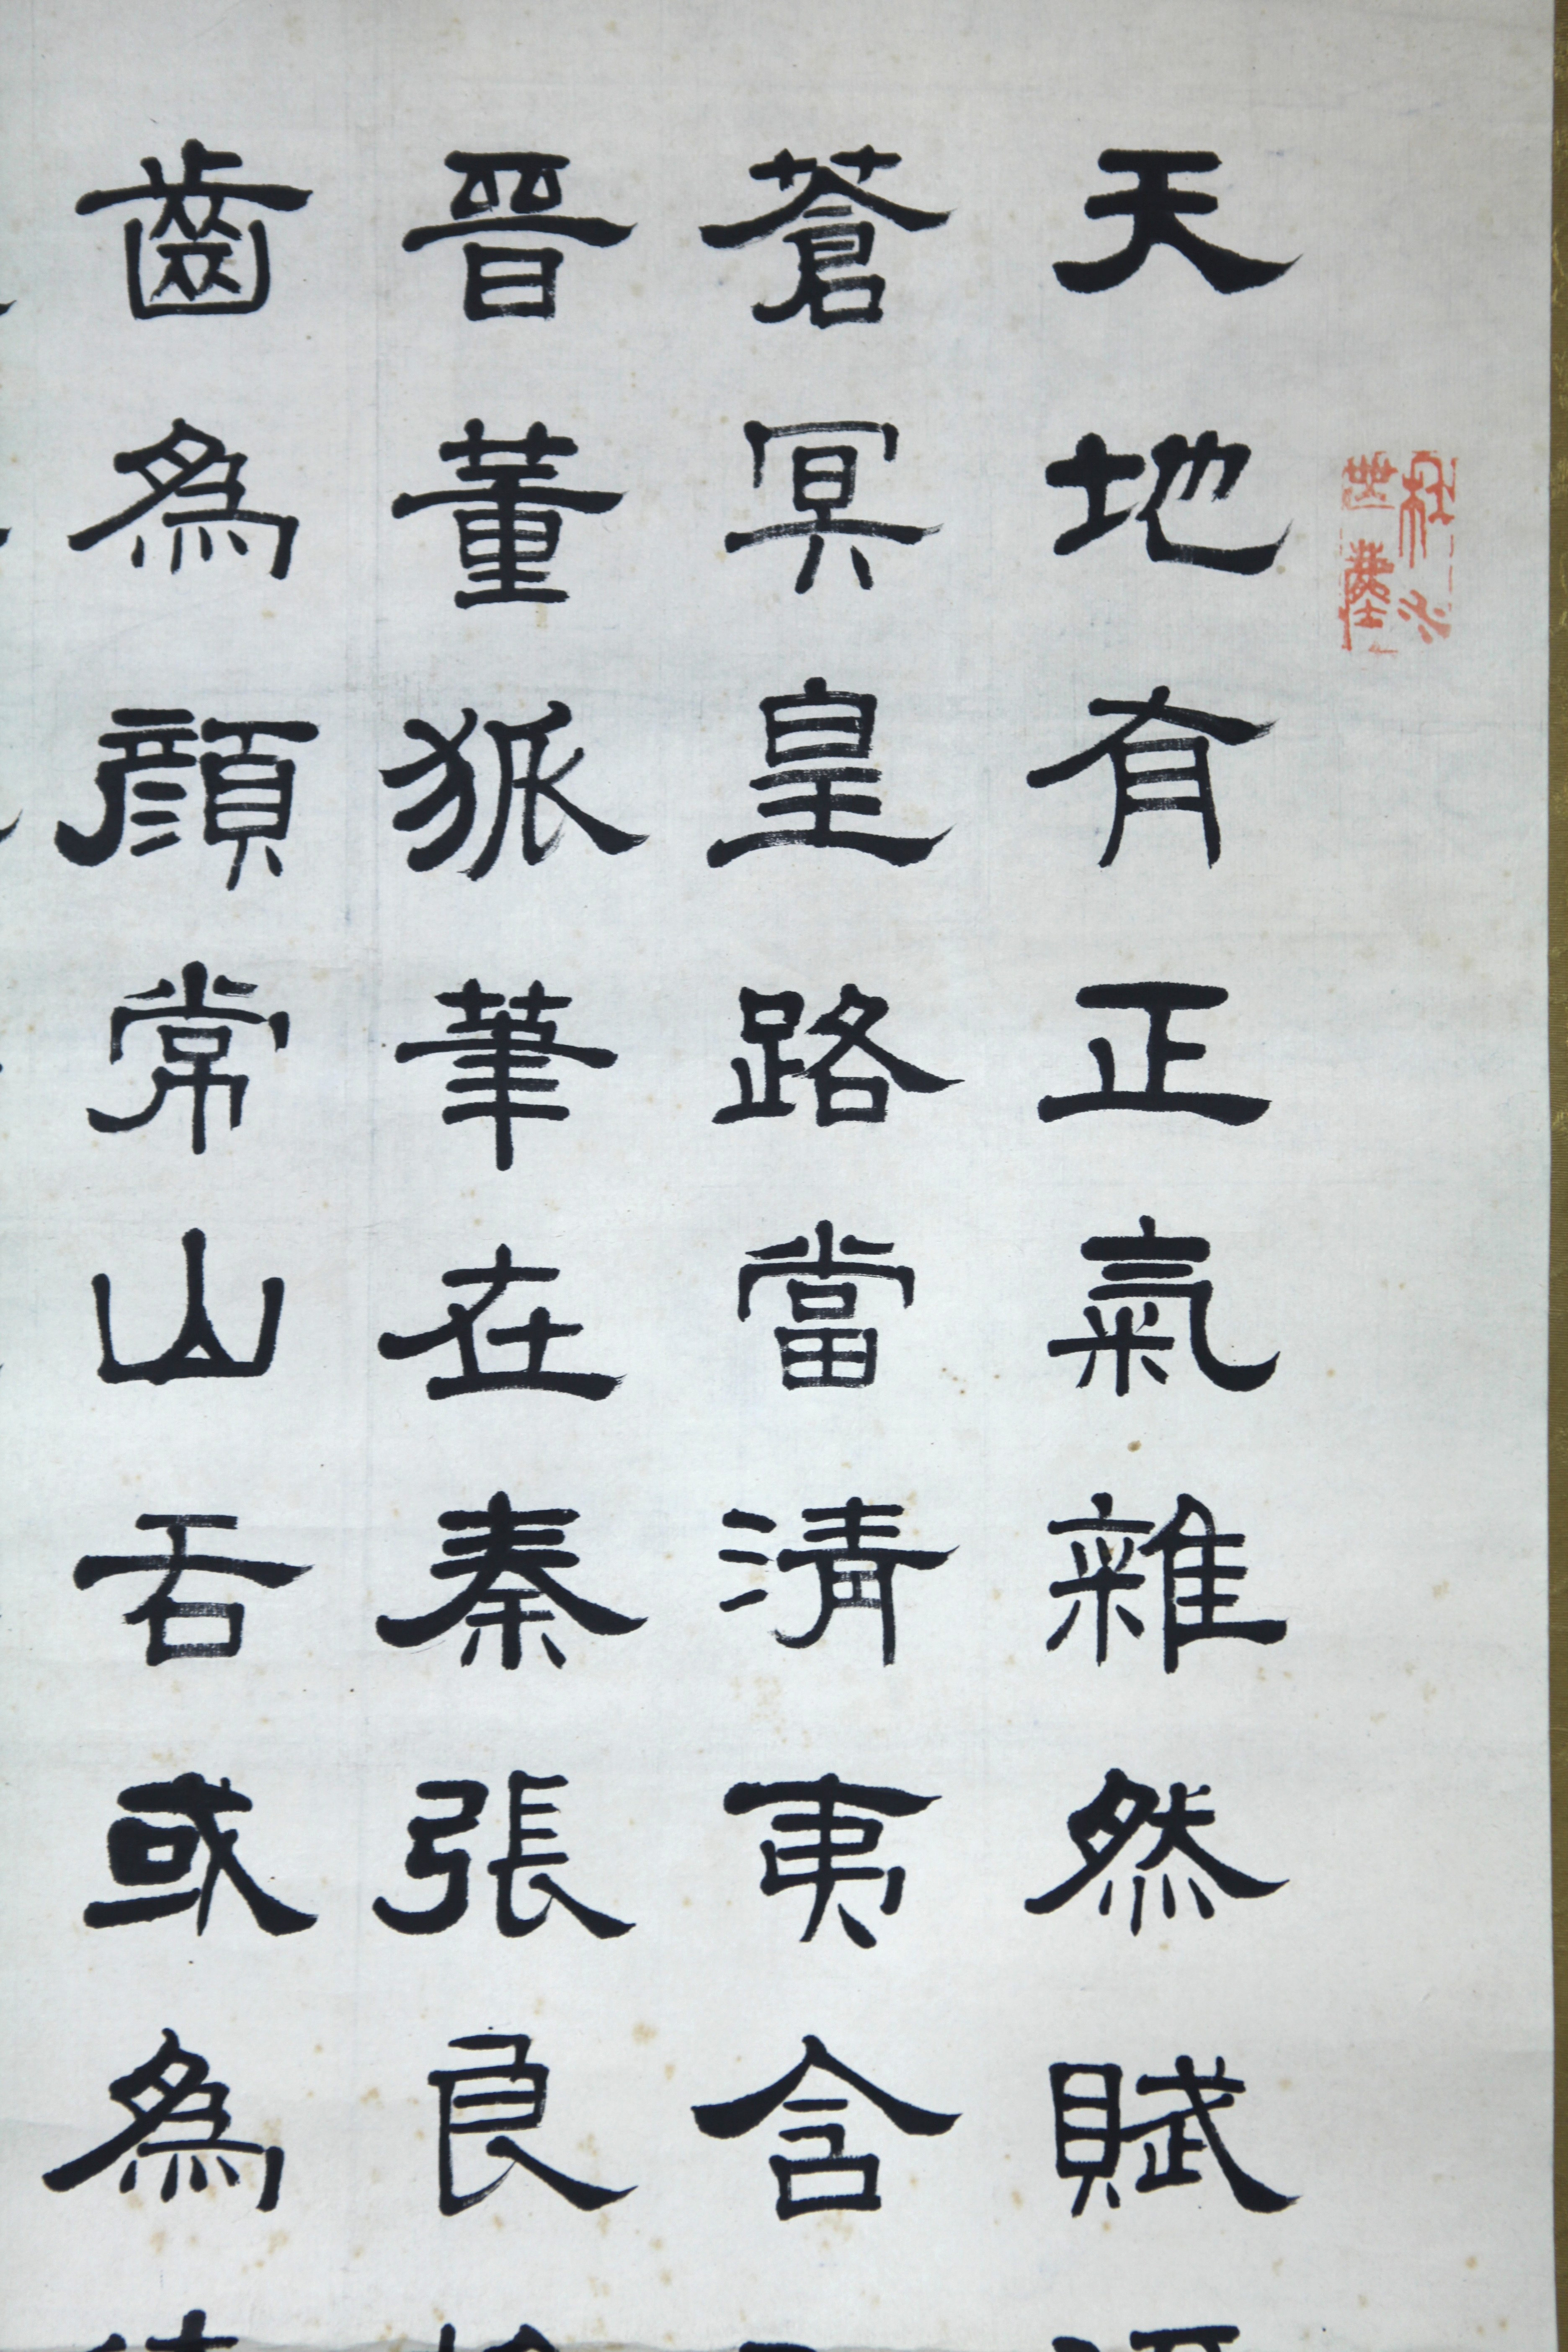 天地有正氣雜然賦
蒼冥皇路當清夷含
晉董狐筆在秦張良
齒為顏常山舌或為